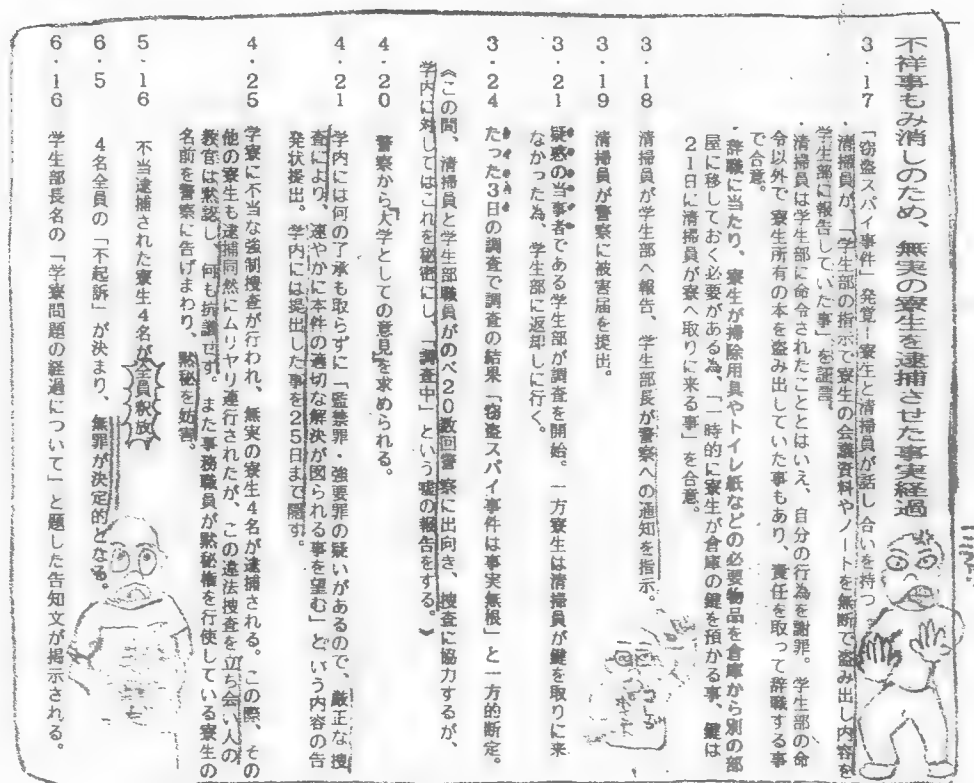 不祥事もみ消しのため、無実の寮生を逮捕させた事実経過
3・17 「窃盗スパイ事件」発覚ー寮生と清掃員が話し合いを持つ
・清掃員が、「学生部の指示で寮生の会議資料やノートを無断で盗み出し内容を
学生部に報告していた事」を証言。
・清掃員は学生部に命令されたこととはいえ、自分の行為を謝罪。学生部の命
令以外で寮生所有の本を盗み出していた事もあり、責任を取って辞職する事
で合意。
・辞職に当たり、寮生が掃除用具やトイレ紙などの必要物品を倉庫から別の部
屋に移しておく必要がある為、「一時的に寮生が倉庫の鍵を預かる事、鍵は
21日に清掃員が寮へ取りに来る事」を合意。
3・18 清掃員が学生部へ報告、学生部長が警察への通知を指示。
3・19 清掃員が警察に被害届を提出。
3・21 疑惑の当事者である学生部が調査を開始。一方寮生は清掃員が鍵を取りに来
なかった為、学生部に返却しに行く。
3・24 たった3日の調査で調査の結果「窃盗スパイ事件は事実無根」と一方的断定。
《この間、清掃員と学生部職員がのべ20数回警察に出向き、捜査に協力するが、
学内に対してはこれを秘密にし、「調査中」という嘘の報告をする。》
4・20 警察から「大学としての意見」を求められる。
4・21 学内には何の了承も取らずに「監禁罪・強要罪の疑いがあるので、厳正な捜
査により、速やかに本件の適切な解決が図られる事を望む」という内容の告
発状提出。学内には提出した事を25日まで隠す。
4・25 学寮に不当な強制捜査が行われ、無実の寮生4名が逮捕される。この際、その
他の寮生も逮捕同然にムリヤリ連行されたが、この違法捜査を立ち会い人の
教官は黙認し、何も抗議せず。また事務職員が黙秘権を行使している寮生の
名前を警察に告げまわり、黙秘を妨害。
5・16 不当逮捕された寮生4名が全員釈放。
6・5 4名全員の「不起訴」が決まり、無罪が決定的となる。
6・16 学生部長名の「学寮問題の経過について」と題した告知文が掲示される。